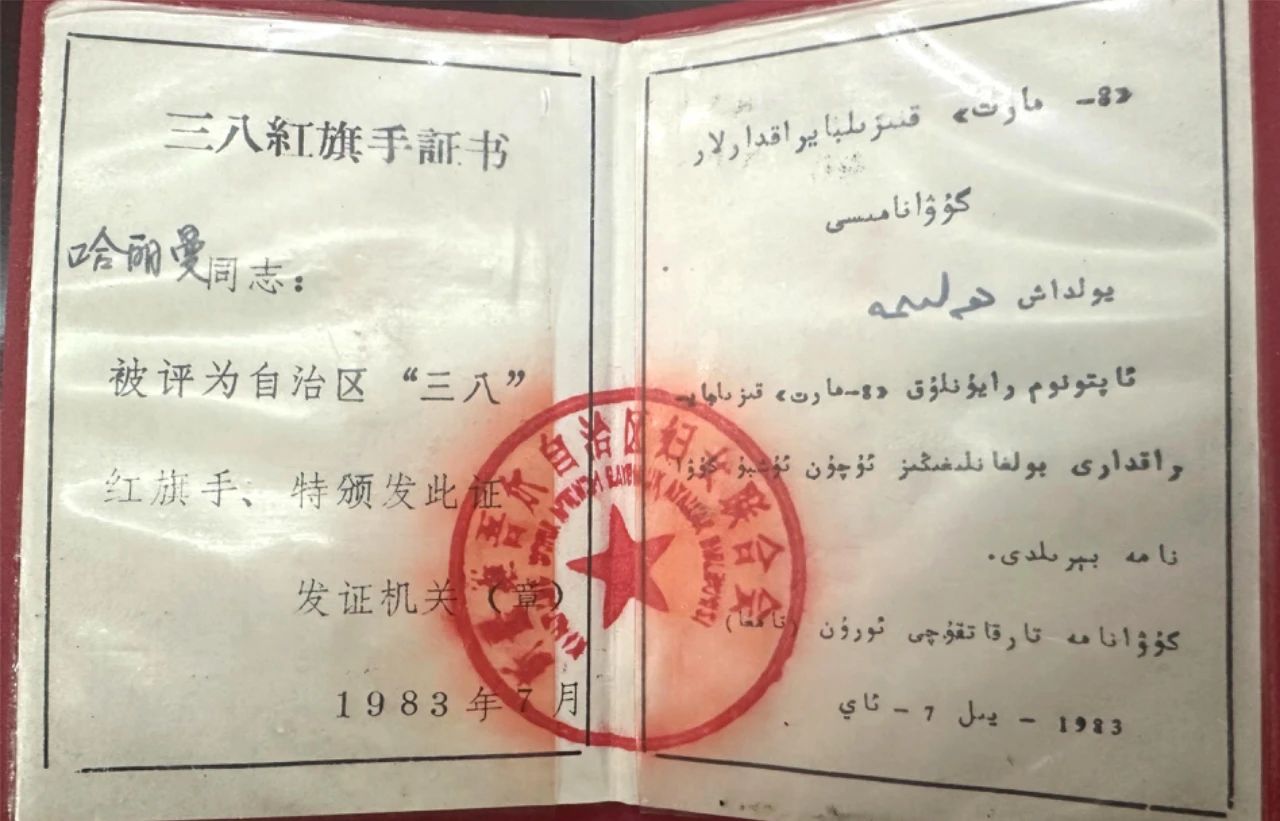 三八紅旗手証书
哈丽曼同志：
被评为自治区“三八”
红旗手、特颁发此证
发证机关（章）
1983年7月
«8- مارت» قىزىلبايراقدارلار
گۇۋانامىسى
يولداش
ئاپتونوم رايۇنلۇق «8-مارت» قىزىلباي-
راقدارى بولغانلىغىڭىز ئۇچۇن ئۇشبۇ گۇۋا
نامە بېرىلدى.
گۇۋانامە تارقاتقۇچى ئورۇن (تامغا)
1983 - يىل 7 - ئاي
新疆维吾尔自治区妇女联合会